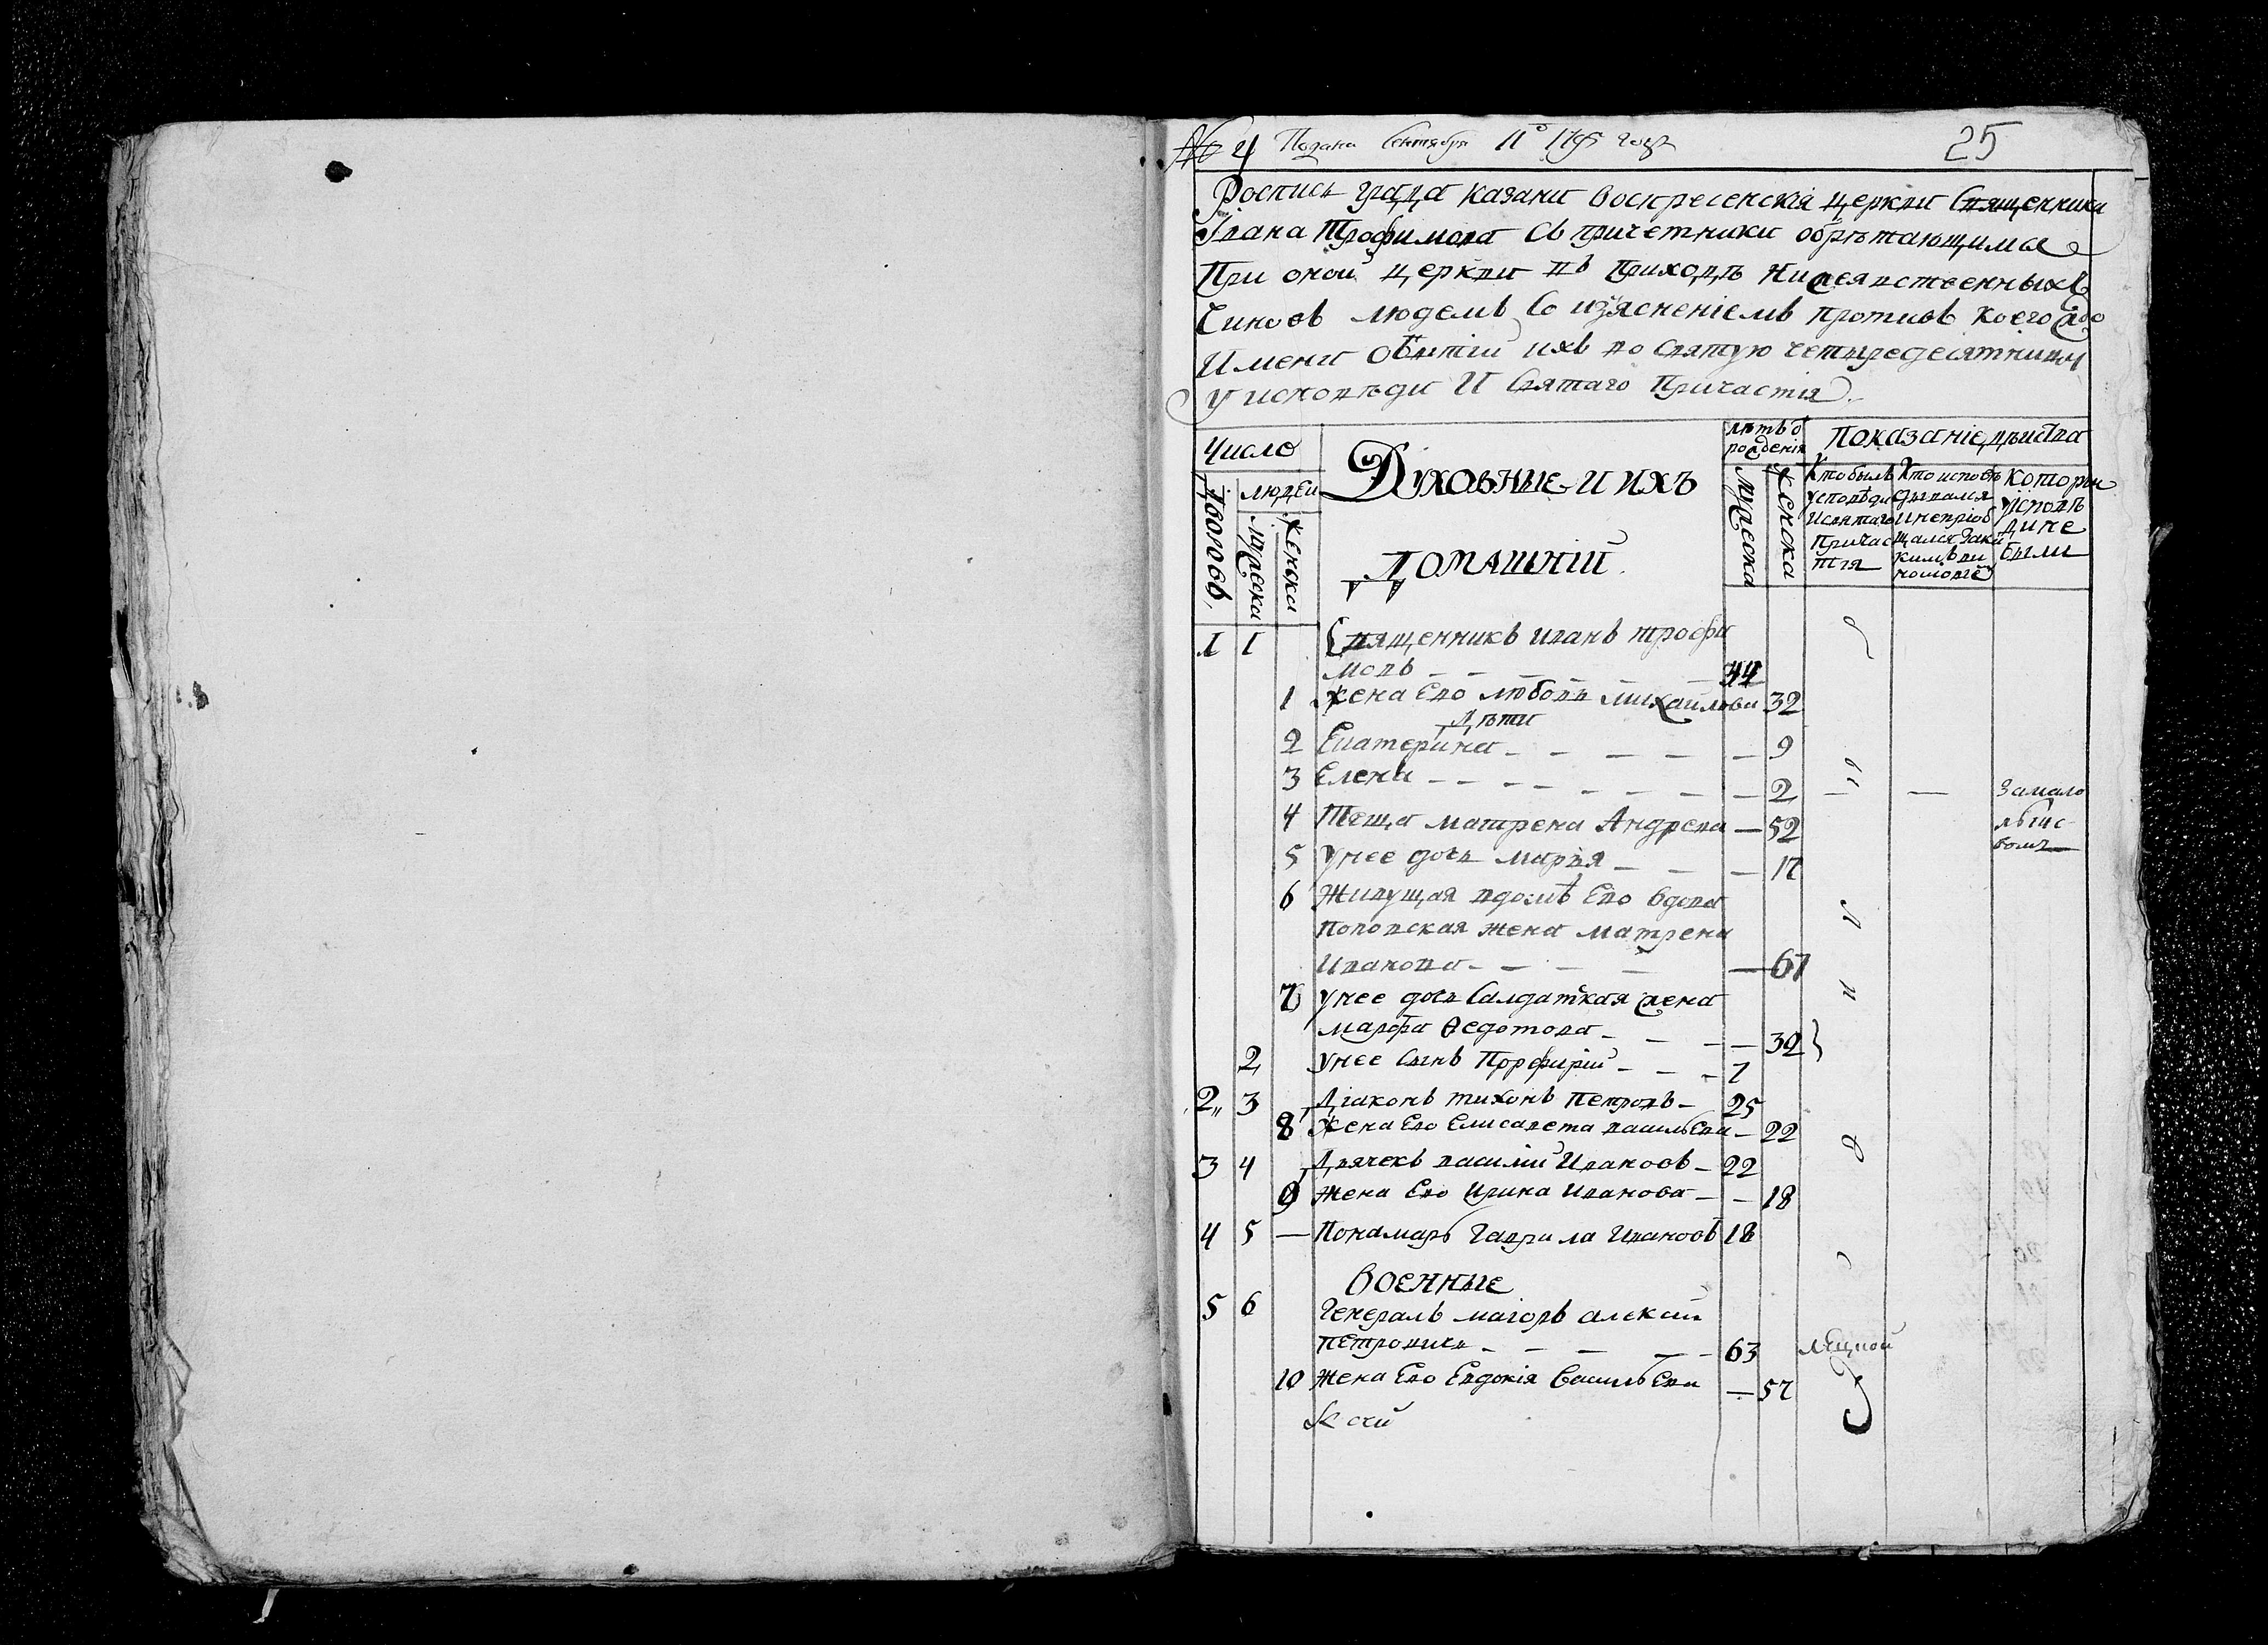 № 4 Подана Сентября 11го 1795 года
25
Роспись града Казани Воскресенскія церкви Священника
Iвана Трофимова съ причетники обрѣтающимся
При оной церкви въ приходѣ Нижеявственныхъ
Чиновъ людемъ Со изъясненіемъ противъ коегождо
Имени о бытіи ихъ во святую четыредесятницу
У исповѣди И Святаго Причастія
Число
лѣтъ о
рожденія
Показаніе дѣиства
Дворовъ
людеи
мужеска
женска
Духовные и ихъ
домашніи
мужеска
женска
Кто былъ
у исповѣди
И святаго
Причас
тія
Кто исповѣ
дывался
И непріоб
щался
кимъ ви
Которыи
у исповѣ
ди не
были
1 1 Священникъ иванъ трофи
мовъ 44
1 жена Ево любовь михаилова 32
дѣти
2 Екатерина 9
3 Елена 2 замало
лѣтс
вомъ
4 Теща матрена Андрева 52
5 У нее дочь марья 17
6 Живущая в домѣ Ево вдова
поповская жена матрена
Иванова 67
7 у нее дочь Салдатская жена
марфа Ѳедотова 32
2 у нее Сынъ Порфирий 7
2 3 Діаконъ тихонъ Петровъ 25
8 Жена Ево Елисавета василЬева 22
3 4 Дьячекъ василии Ивановъ 22
9 жена Ево Ирина Иванова 18
4 5 Понамарь Гаврила Ивановъ 18
Военные
5 6 Генералъ магоръ алексии
петровичь 63
10 жена Ево Евдокія ВасилЬева 57